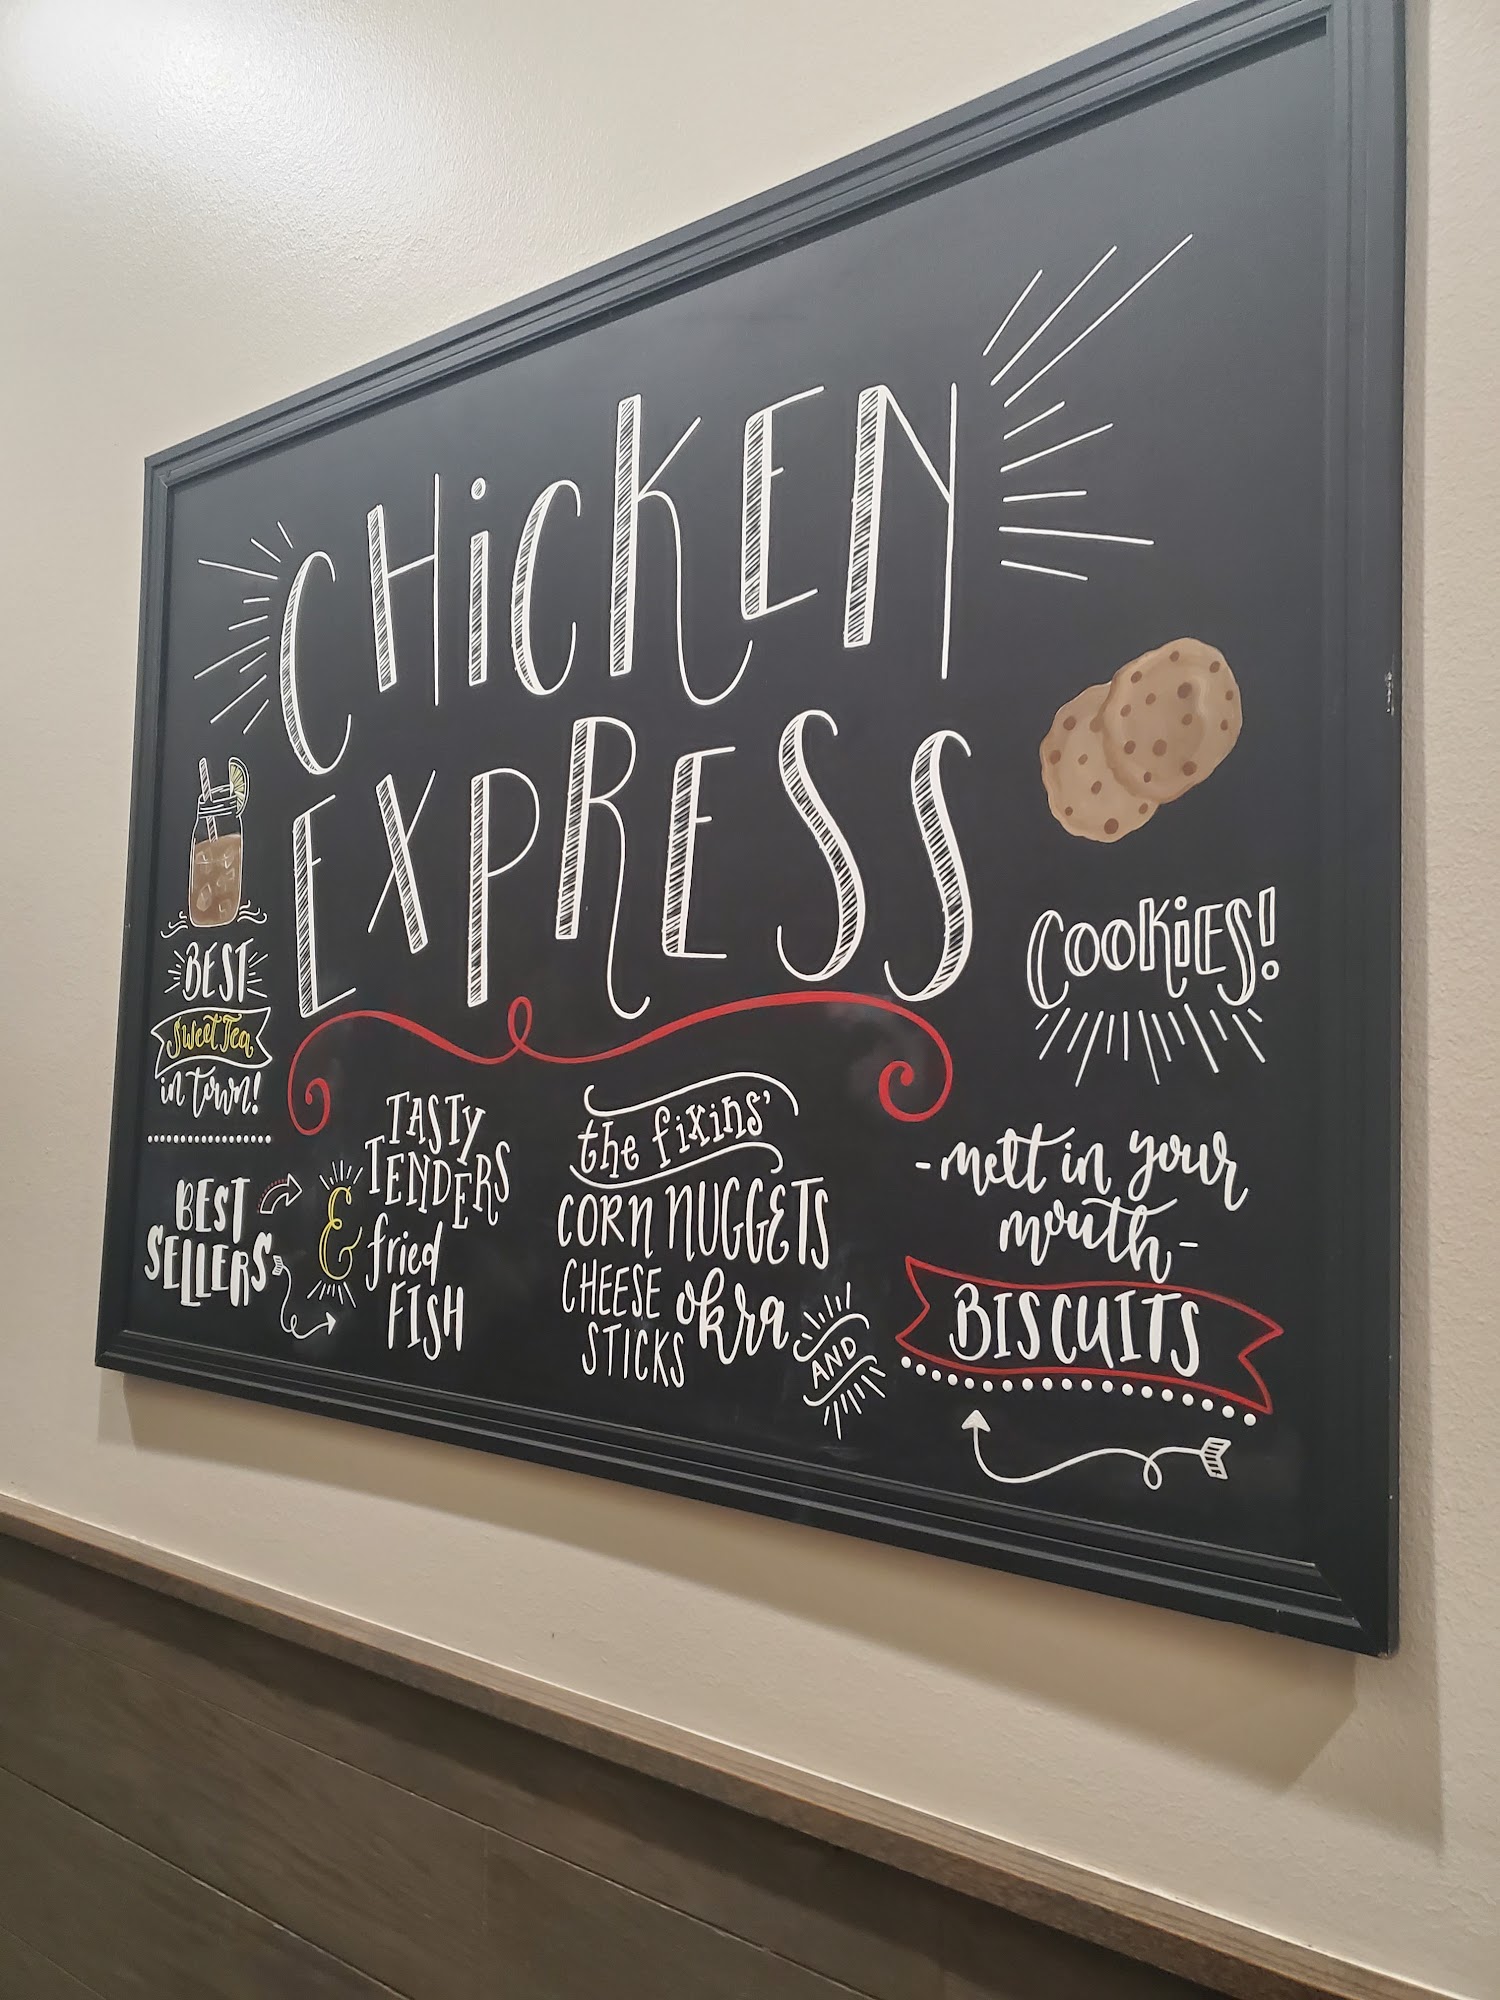 CHiCKEN
EXPRESS
BEST
Sweet Tea
in town!
BEST
SELLERS
TASTY
TENDERS
&
fried
FISH
the fixins'
CORN NUGGETS
CHEESE
STICKS
okra
AND
COOKiES!
-melt in your
mouth-
BISCUITS